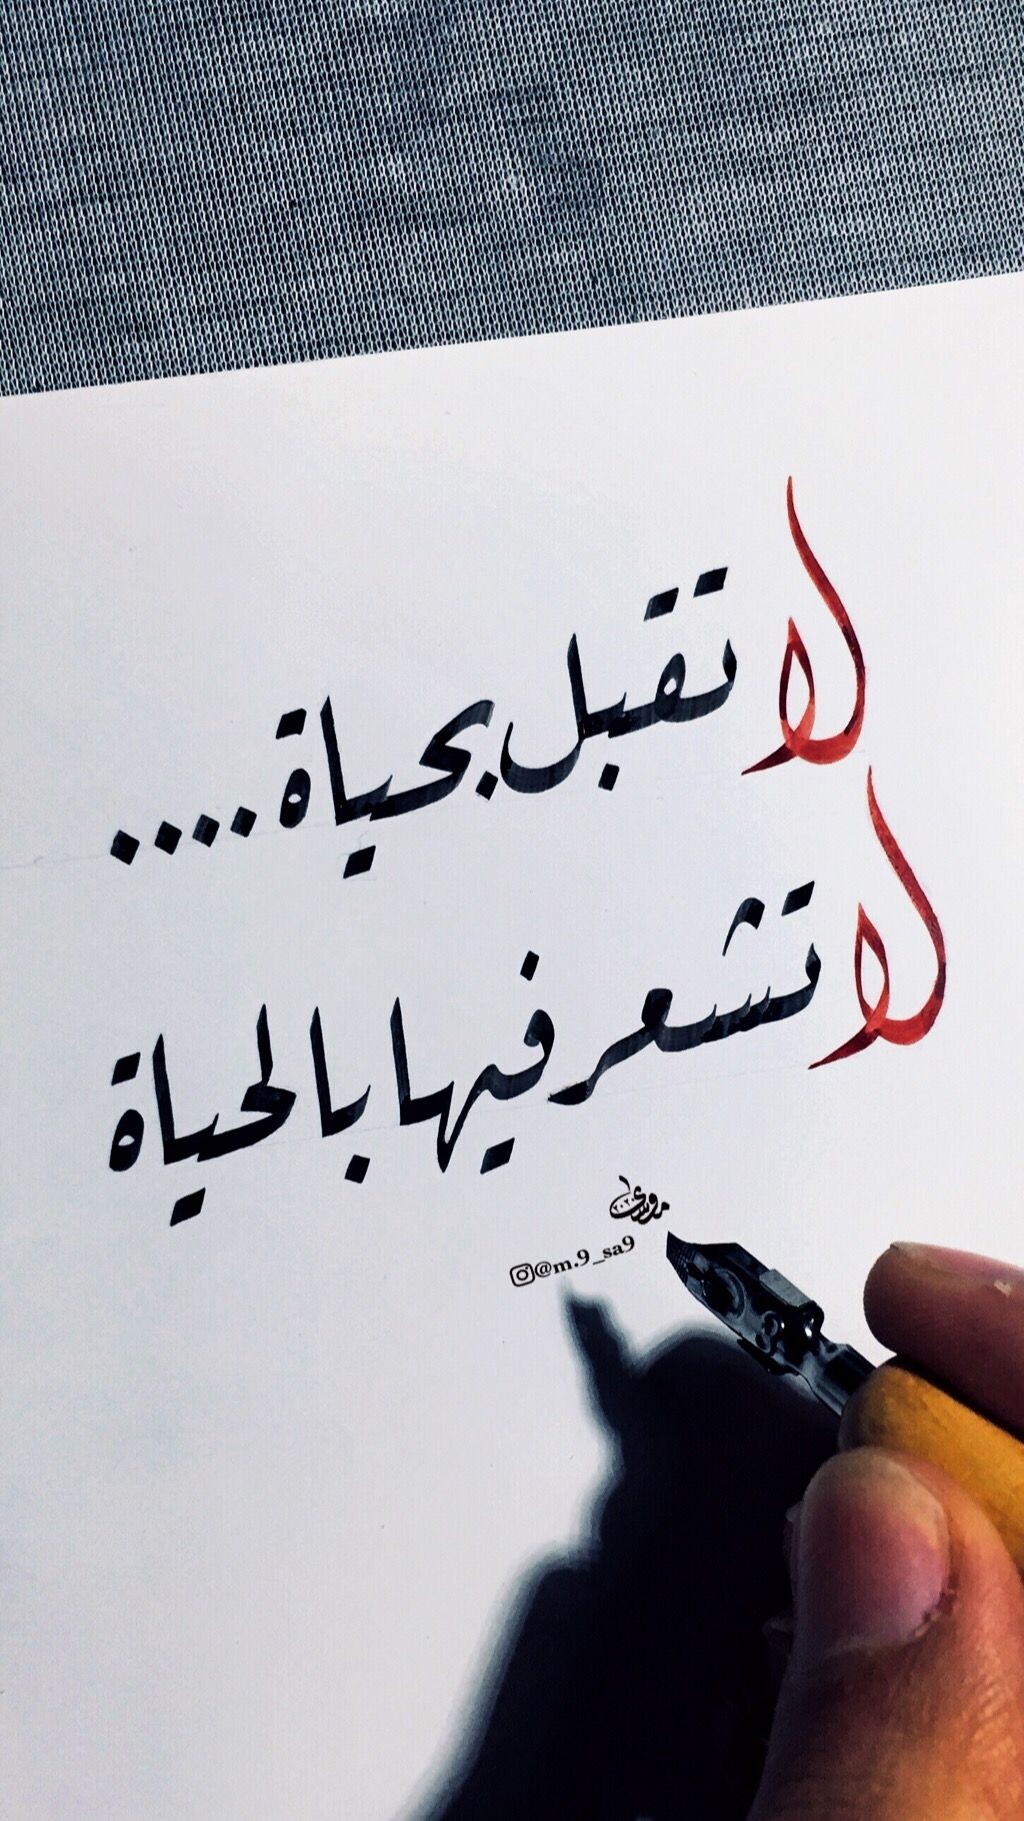 لا تقبل بحياة ....
لا تشعر فيها بالحياة
@m.9_sa9